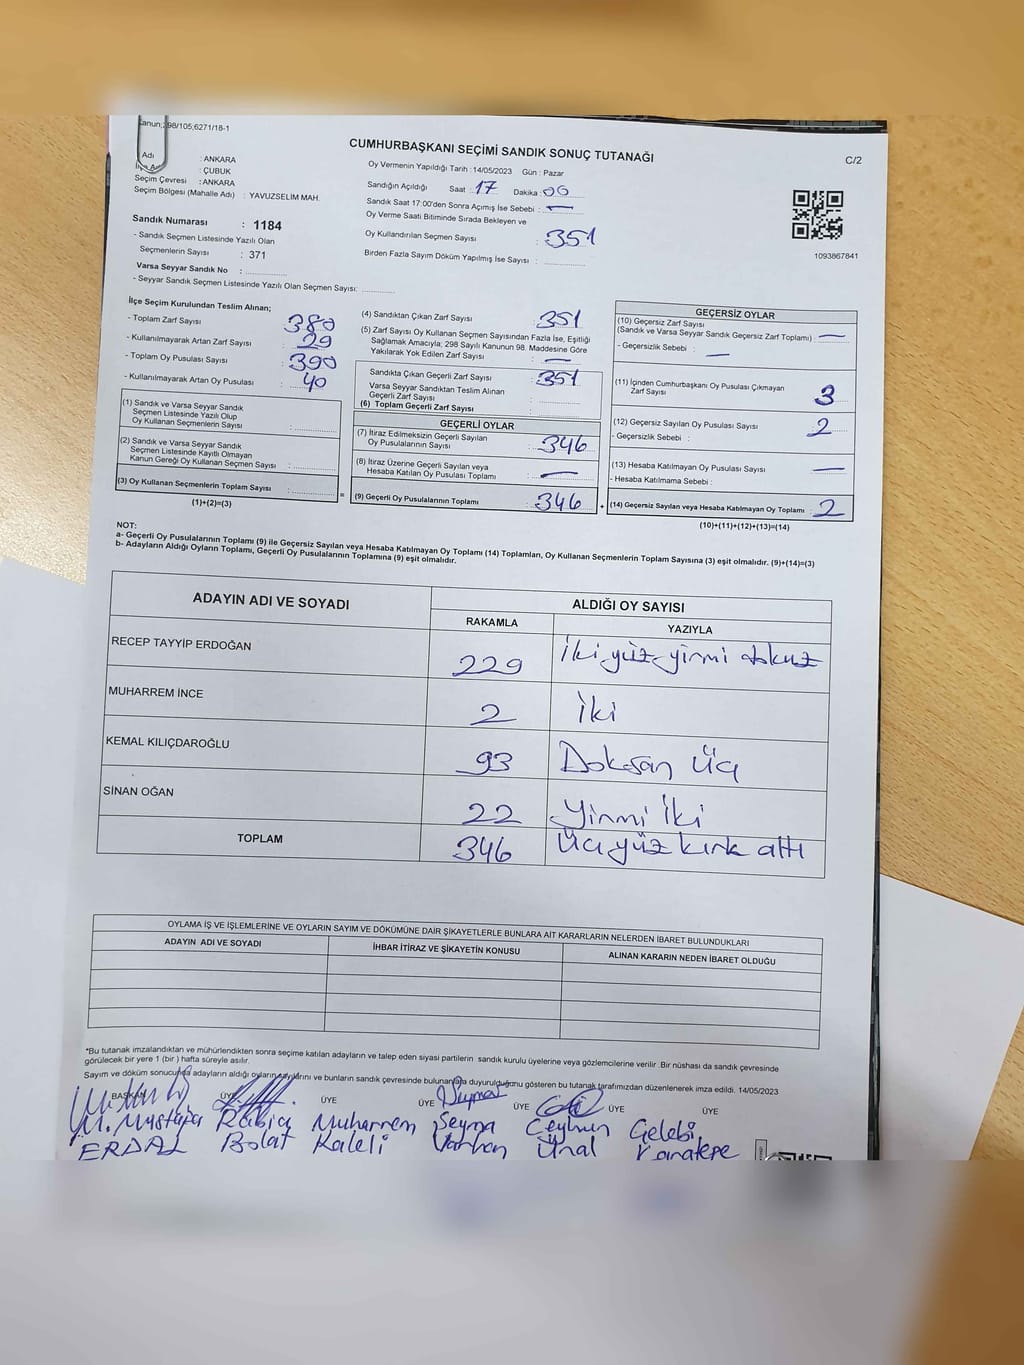 Kanun; 298/105;6271/18-1
CUMHURBAŞKANI SEÇİMİ SANDIK SONUÇ TUTANAĞI
C/2
Adı : ANKARA
: ÇUBUK
Seçim Çevresi : ANKARA
Seçim Bölgesi (Mahalle Adı) : YAVUZSELİM MAH.
Sandık Numarası : 1184
- Sandık Seçmen Listesinde Yazılı Olan
Seçmenlerin Sayısı : 371
Varsa Seyyar Sandık No : ..............
- Seyyar Sandık Seçmen Listesinde Yazılı Olan Seçmen Sayısı: ............
Oy Vermenin Yapıldığı Tarih : 14/05/2023 Gün : Pazar
Sandığın Açıldığı Saat : 17 Dakika : 00
Sandık Saat 17:00'den Sonra Açımış İse Sebebi : —
Oy Verme Saati Bitiminde Sırada Bekleyen ve
Oy Kullandırılan Seçmen Sayısı : 351
Birden Fazla Sayım Döküm Yapılmış İse Sayısı : ..............
1093867841
İlçe Seçim Kurulundan Teslim Alınan;
- Toplam Zarf Sayısı : 380
- Kullanılmayarak Artan Zarf Sayısı : 29
- Toplam Oy Pusulası Sayısı : 390
- Kullanılmayarak Artan Oy Pusulası : 40
(1) Sandık ve Varsa Seyyar Sandık
Seçmen Listesinde Yazılı Olup
Oy Kullanan Seçmenlerin Sayısı : ..............
(2) Sandık ve Varsa Seyyar Sandık
Seçmen Listesinde Kayıtlı Olmayan
Kanun Gereği Oy Kullanan Seçmen Sayısı : ..............
(3) Oy Kullanan Seçmenlerin Toplam Sayısı : ..............
(1)+(2)=(3)
(4) Sandıktan Çıkan Zarf Sayısı : 351
(5) Zarf Sayısı Oy Kullanan Seçmen Sayısından Fazla İse, Eşitliği
Sağlamak Amacıyla; 298 Sayılı Kanunun 98. Maddesine Göre
Yakılarak Yok Edilen Zarf Sayısı : —
Sandıkta Çıkan Geçerli Zarf Sayısı : 351
Varsa Seyyar Sandıktan Teslim Alınan
Geçerli Zarf Sayısı : ..............
(6) Toplam Geçerli Zarf Sayısı : ..............
GEÇERLİ OYLAR
(7) İtiraz Edilmeksizin Geçerli Sayılan
Oy Pusulalarının Sayısı : 346
(8) İtiraz Üzerine Geçerli Sayılan veya
Hesaba Katılan Oy Pusulası Toplamı : —
= (9) Geçerli Oy Pusulalarının Toplamı : 346 +
GEÇERSİZ OYLAR
(10) Geçersiz Zarf Sayısı
(Sandık ve Varsa Seyyar Sandık Geçersiz Zarf Toplamı) : —
- Geçersizlik Sebebi : —
(11) İçinden Cumhurbaşkanı Oy Pusulası Çıkmayan
Zarf Sayısı : 3
(12) Geçersiz Sayılan Oy Pusulası Sayısı : 2
- Geçersizlik Sebebi :
(13) Hesaba Katılmayan Oy Pusulası Sayısı : —
- Hesaba Katılmama Sebebi :
(14) Geçersiz Sayılan veya Hesaba Katılmayan Oy Toplamı : 2
(10)+(11)+(12)+(13)=(14)
NOT:
a- Geçerli Oy Pusulalarının Toplamı (9) ile Geçersiz Sayılan veya Hesaba Katılmayan Oy Toplamı (14) Toplamları, Oy Kullanan Seçmenlerin Toplam Sayısına (3) eşit olmalıdır. (9)+(14)=(3)
b- Adayların Aldığı Oyların Toplamı, Geçerli Oy Pusulalarının Toplamına (9) eşit olmalıdır.
ADAYIN ADI VE SOYADI ALDIĞI OY SAYISI
RAKAMLA YAZIYLA
RECEP TAYYİP ERDOĞAN 229 İki yüz yirmi dokuz
MUHARREM İNCE 2 İki
KEMAL KILIÇDAROĞLU 93 Doksan Üç
SİNAN OĞAN 22 Yirmi İki
TOPLAM 346 Üç yüz kırk altı
OYLAMA İŞ VE İŞLEMLERİNE VE OYLARIN SAYIM VE DÖKÜMÜNE DAİR ŞİKAYETLERLE BUNLARA AİT KARARLARIN NELERDEN İBARET BULUNDUKLARI
ADAYIN ADI VE SOYADI İHBAR İTİRAZ VE ŞİKAYETİN KONUSU ALINAN KARARIN NEDEN İBARET OLDUĞU
*Bu tutanak imzalandıktan ve mühürlendikten sonra seçime katılan adayların ve talep eden siyasi partilerin sandık kurulu üyelerine veya gözlemcilerine verilir. Bir nüshası da sandık çevresinde
görülecek bir yere 1 (bir ) hafta süreyle asılır.
Sayım ve döküm sonucunda adayların aldığı oyların sayılarını ve bunların sandık çevresinde bulunanlara duyurulduğunu gösteren bu tutanak tarafımızdan düzenlenerek imza edildi. 14/05/2023
BAŞKAN ÜYE ÜYE ÜYE ÜYE ÜYE ÜYE
M. Mustafa Rabia Muharrem Şeyma Ceyhun Çelebi
ERDAL Bolat Kaleli Ünal Karatepe